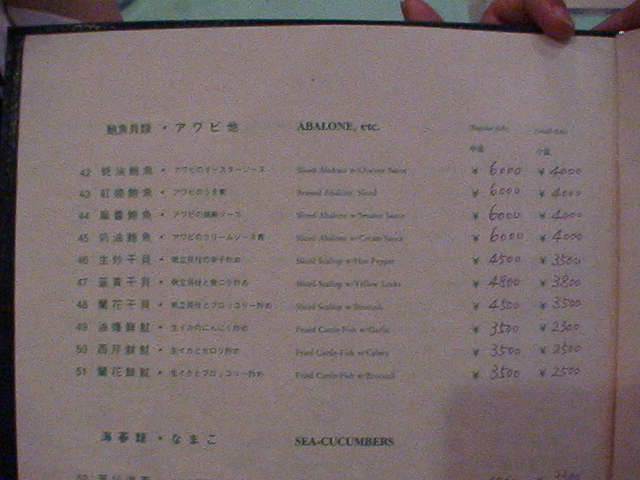 鮑魚貝類・アワビ他 ABALONE, etc.
中盆 小盆
42 蠔油鮑魚・アワビのオイスターソース Sliced Abalone w/Oyster Sauce ¥ 6000 ¥ 4000
43 紅燒鮑魚・アワビのうま煮 Braised Abalone, Sliced ¥ 6000 ¥ 4000
44 鮑魚・アワビの ソース Sliced Abalone w/ Sauce ¥ 6000 ¥ 4000
45 奶油鮑魚・アワビのクリームソース煮 Sliced Abalone w/Cream Sauce ¥ 6000 ¥ 4000
46 生炒干貝・帆立貝柱の辛子炒め Sliced Scallop w/Hot Pepper ¥ 4500 ¥ 3500
47 韮黄干貝・帆立貝柱と黄ニラ炒め Sliced Scallop w/Yellow Leeks ¥ 4800 ¥ 3800
48 蘭花干貝・帆立貝柱とブロッコリー炒め Sliced Scallop w/Broccoli ¥ 4500 ¥ 3500
49 油爆鮮魷・生イカのにんにく炒め Fried Cuttle-Fish w/Garlic ¥ 3500 ¥ 2500
50 西芹鮮魷・生イカとセロリ炒め Fried Cuttle-Fish w/Celery ¥ 3500 ¥ 2500
51 蘭花鮮魷・生イカとブロッコリー炒め Fried Cuttle-Fish w/Broccoli ¥ 3500 ¥ 2500
海蔘類・なまこ SEA-CUCUMBERS